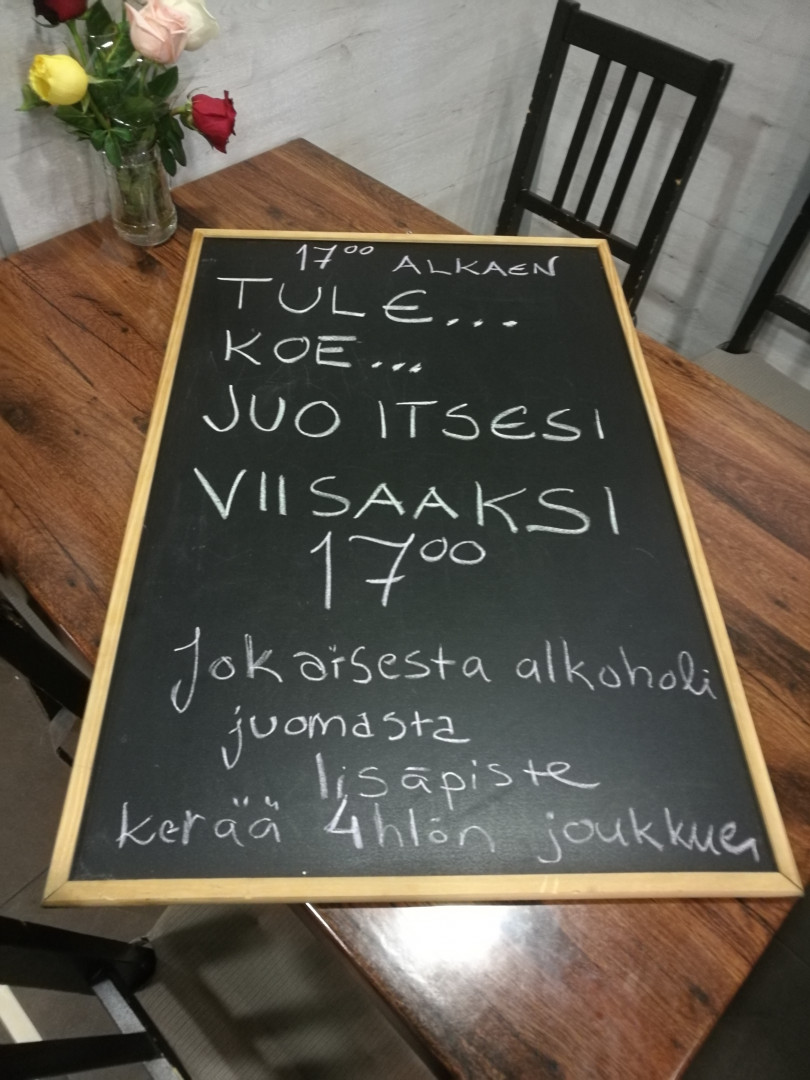 17⁰⁰ ALKAEN
TULE...
KOE...
JUO ITSESI
VIISAAKSI
17⁰⁰
Jokaisesta alkoholi
juomasta
lisäpiste
kerää 4hlön joukkue